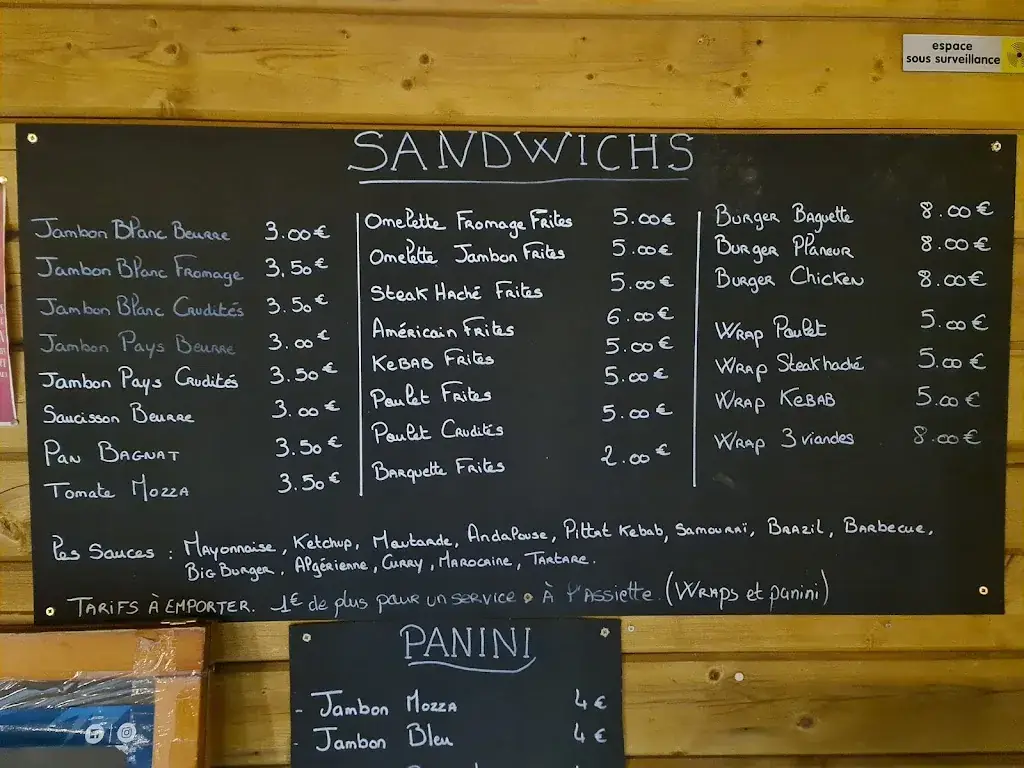 espace
sous surveillance
SANDWICHS
Jambon Blanc Beurre 3.00€
Jambon Blanc Fromage 3.50€
Jambon Blanc Crudités 3.50€
Jambon Pays Beurre 3.00€
Jambon Pays Crudités 3.50€
Saucisson Beurre 3.00€
Pan Bagnat 3.50€
Tomate Mozza 3.50€
Omelette Fromage Frites 5.00€
Omelette Jambon Frites 5.00€
Steak Haché Frites 5.00€
Américain Frites 6.00€
Kebab Frites 5.00€
Poulet Frites 5.00€
Poulet Crudités 5.00€
Barquette Frites 2.00€
Burger Baguette 8.00€
Burger Planeur 8.00€
Burger Chicken 8.00€
Wrap Poulet 5.00€
Wrap Steak haché 5.00€
Wrap Kebab 5.00€
Wrap 3 viandes 8.00€
Les Sauces : Mayonnaise, Ketchup, Moutarde, Andalouse, Pittat Kebab, Samouraï, Brazil, Barbecue,
Big Burger, Algérienne, Curry, Marocaine, Tartare.
Tarifs à emporter. 1€ de plus pour un service à l'Assiette. (Wraps et panini)
PANINI
- Jambon Mozza 4€
- Jambon Bleu 4€